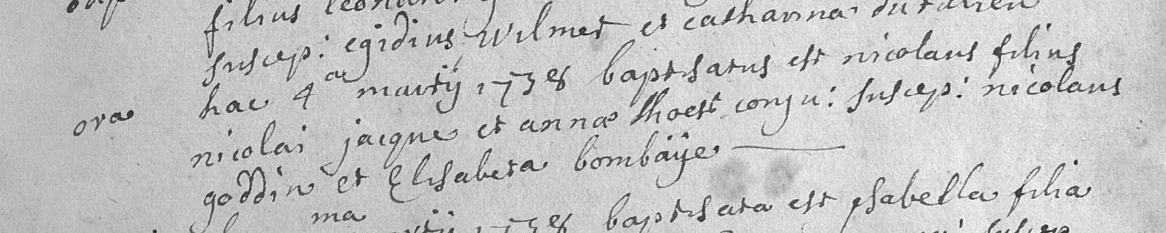 filius
suscep: egidius wilmet et catharina
hac 4a martij 1738 baptisatus est nicolaus filius
ora nicolai jacque et annæ thoest conju: suscep: nicolaus
goddin et Elisabeta bombaÿe
ma 1738 baptisata est ysabella filia